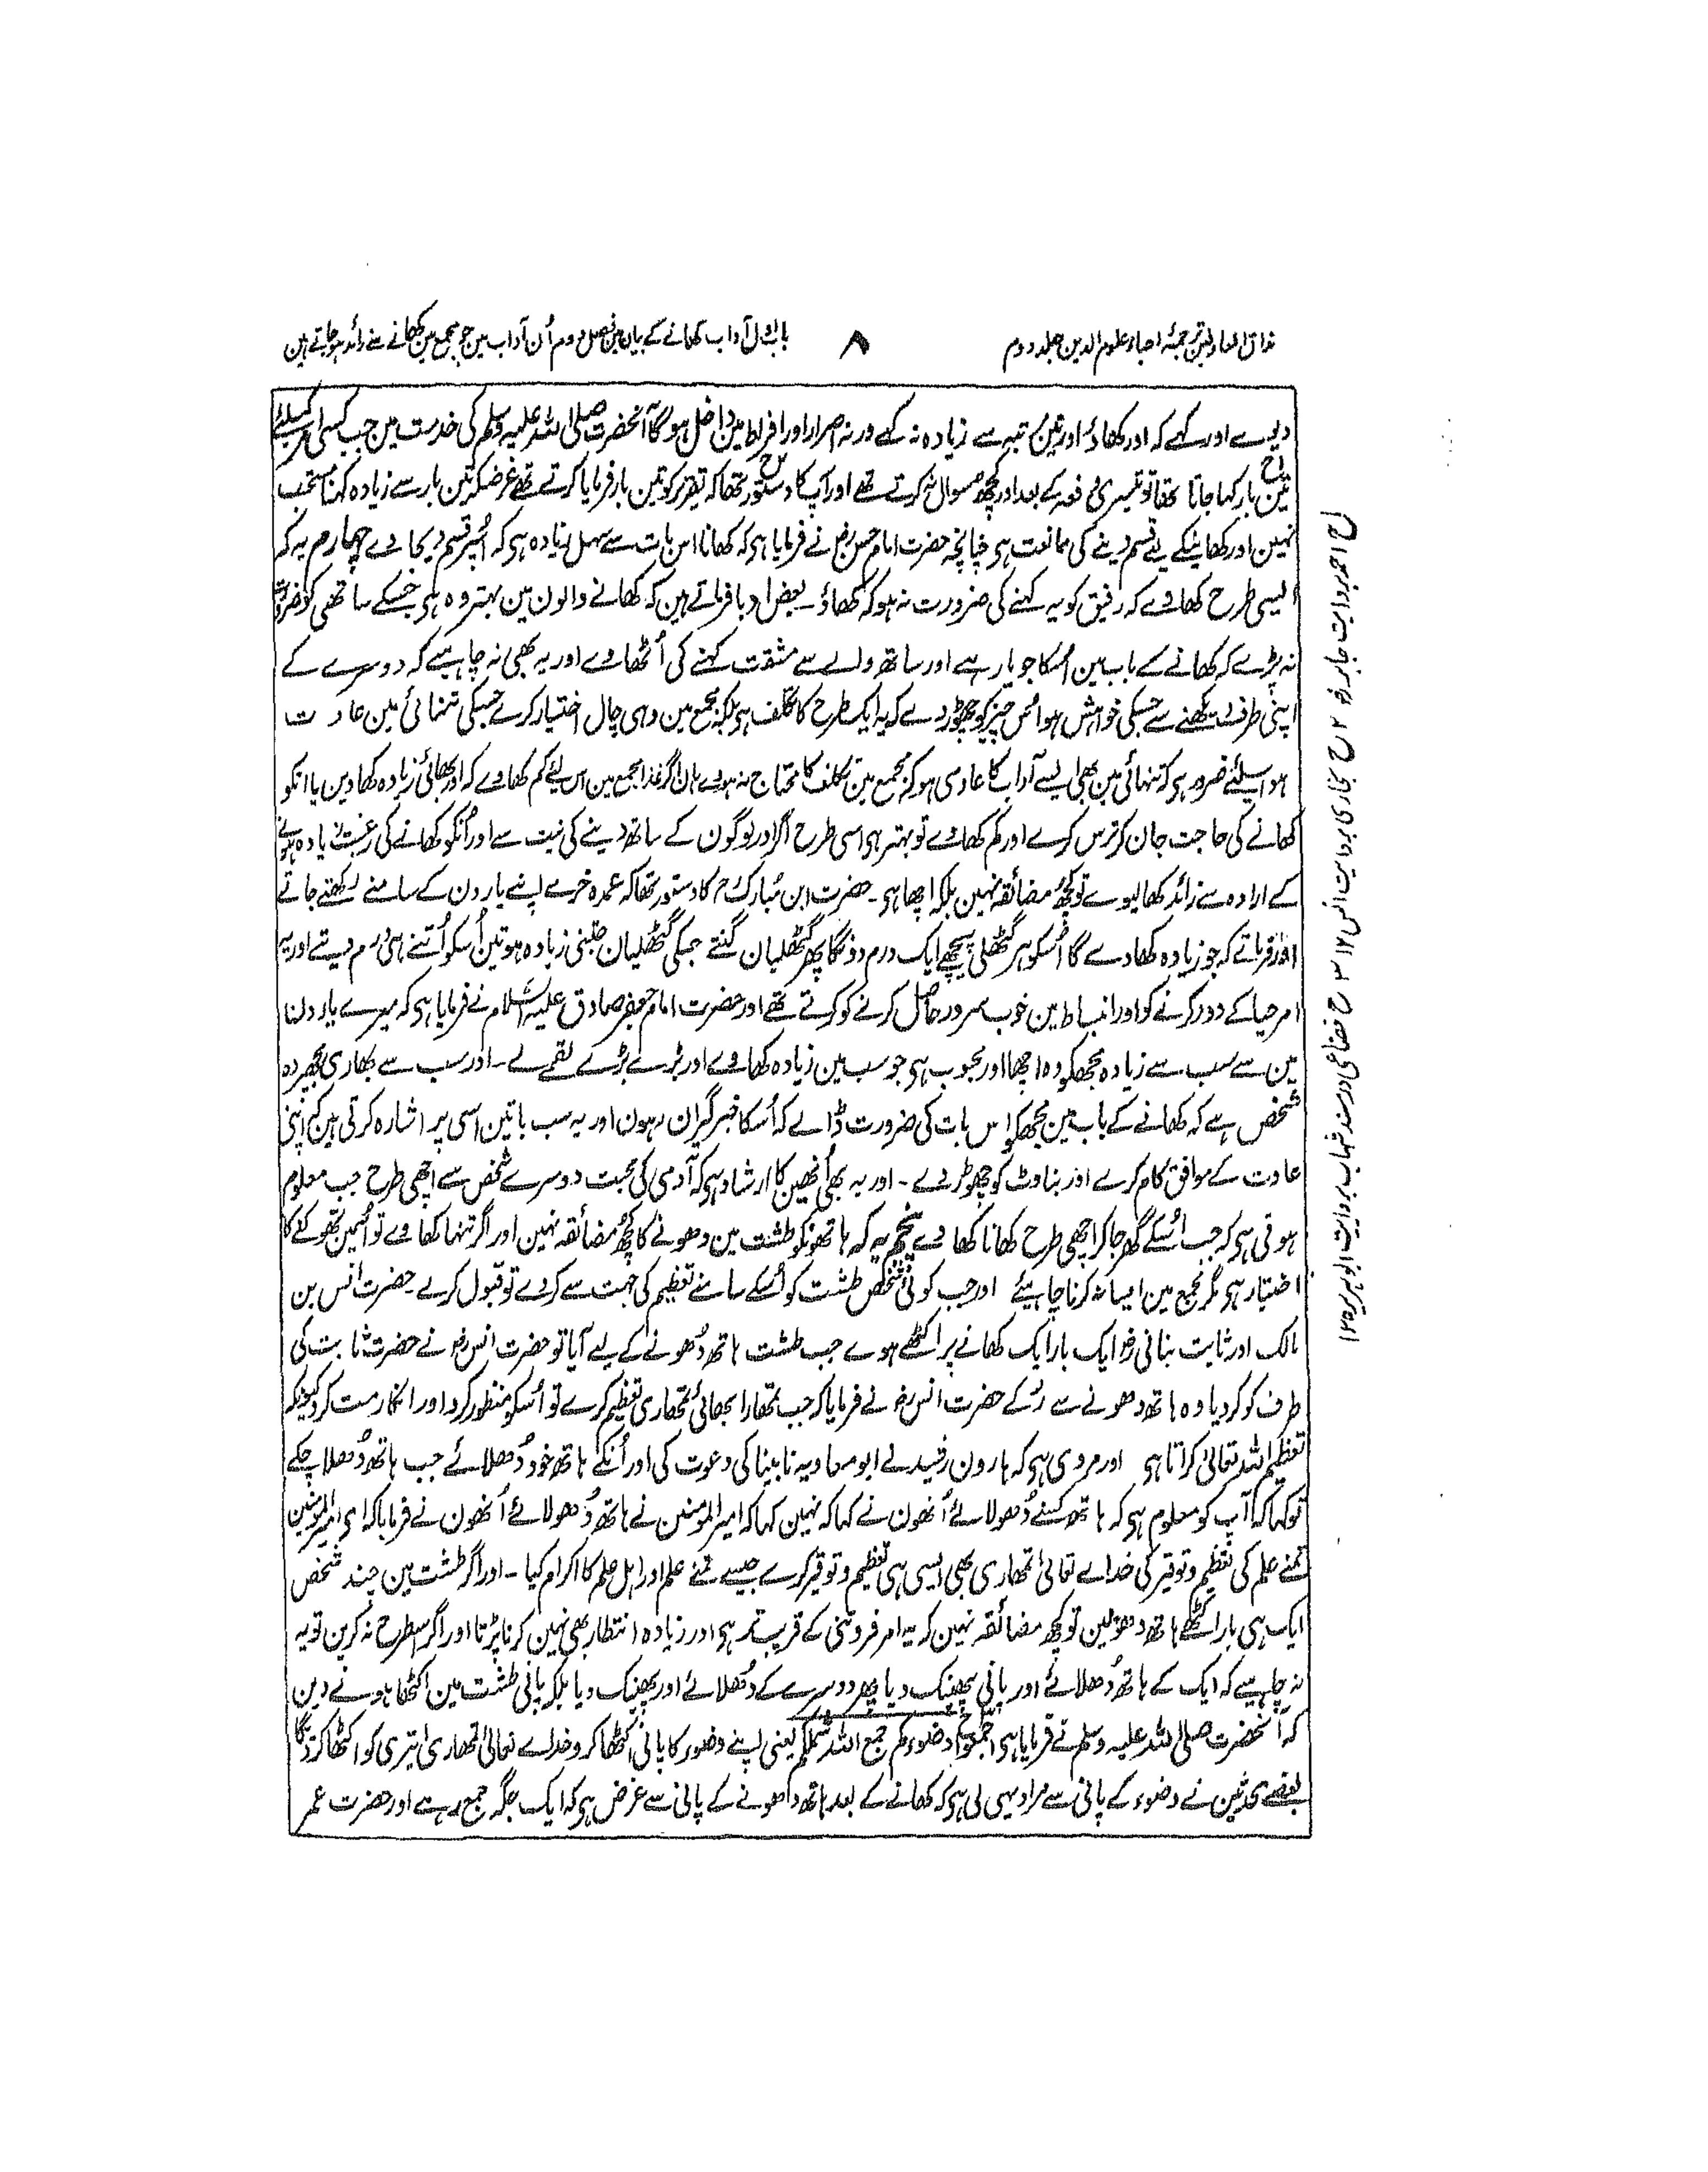 مذاق العارفین ترجمۂ احیاء علوم الدین جلد دوم
۸
باب اول آداب کھانے کے بیان مین فصل دوم اُن آداب مین جو مجمع مین کھانے سے زائد ہو جاتے ہین
دیوے اور کہے کہ اور کھاؤ اور تین مرتبہ سے زیادہ نہ کہے ورنہ اصرار اور افراط مین داخل ہوگا آنحضرت صلی اللہ علیہ وسلم کی خدمت مین جب کسی امر کیلئے
تین بار کہا جاتا تھا تو تیسری دفعہ کے بعد اور کچھ سوال نہ کرتے تھے اور آپ کا دستور تھا کہ تقریر کو تین بار فرمایا کرتے تھے غرضکہ تین بار سے زیادہ کہنا مستحب
نہین اور کھانیکے لیے قسم دینے کی ممانعت ہی چنانچہ حضرت امام حسن رض نے فرمایا ہی کہ کھانا اس بات سے سہل زیادہ ہی کہ اُسپر قسم دیجاوے چہارم یہ کہ
ایسی طرح کھاوے کہ رفیق کو یہ کہنے کی ضرورت نہ ہو کہ کھاؤ۔ بعض ادبا فرماتے ہین کہ کھانے والون مین بہتر وہ ہی جسکے ساتھی کو ضرورت
نہ پڑے کہ کھانے کے باب مین اُسکا جویا رہے اور ساتھ والے سے مشقت کہنے کی اُٹھاوے اور یہ بھی نہ چاہیے کہ دوسرے کے
اپنی طرف دیکھنے سے جسکی خواہش ہو اُس چیز کو چھوڑ دے کہ یہ ایک طرح کا تکلف ہی بلکہ مجمع مین وہی چال اختیار کرے جسکی تنہائی مین عادت
ہو اسلئے ضرور ہی کہ تنہائی مین بھی ایسے آداب کا عادی ہو کہ مجمع مین تکلف کا محتاج نہ ہووے ہان اگر غذا مجمع مین اس لیے کم کھاوے کہ اور بھائی زیادہ کھاوین یا انکو
کھانے کی حاجت جان کر ترس کرے اور کم کھاوے تو بہتر ہی اسی طرح اگر اور لوگون کے ساتھ دینے کی نیت سے اور اُنکو کھانے کی رغبت زیادہ ہونے
کے ارادہ سے زائد کھا لیوے تو کچھ مضائقہ نہین بلکہ اچھا ہی۔ حضرت ابن مُبارک رح کا دستور تھا کہ عمدہ خرمے اپنے یارون کے سامنے رکھتے جاتے
اور فرماتے کہ جو زیادہ کھاوے گا اُسکو ہر گٹھلی پیچھے ایک درم دونگا پھر گٹھلیان گنتے جسکی گٹھلیان جتنی زیادہ ہوتین اُسکو اُتنے ہی درم دیتے اور یہ
امر حیا کے دور کرنے کو اور انبساط مین خوب سرور حاصل کرنے کو کرتے تھے اور حضرت امام جعفر صادق علیہ السلام نے فرمایا ہی کہ میرے یارون
مین سے سب سے زیادہ مجھکو وہ اچھا اور محبوب ہی جو سب مین زیادہ کھاوے اور بڑے بڑے لقمے لے۔ اور سب سے بھاری مجھپر وہ
شخص ہے کہ کھانے کے باب مین مجھکو اس بات کی ضرورت ڈالے کہ اُسکا خبرگیران رہون اور یہ سب باتین اسی پر اشارہ کرتی ہین کہ اپنی
عادت کے موافق کام کرے اور بناوٹ کو چھوڑ دے۔ اور یہ بھی اُنھین کا ارشاد ہی کہ آدمی کی محبت دوسرے شخص سے اچھی طرح جب معلوم
ہوتی ہی کہ جب اُسکے گھر جا کر اچھی طرح کھانا کھاوے پنجم یہ کہ ہاتھونکو طشت مین دھونے کا کچھ مضائقہ نہین اور اگر تنہا کھاوے تو اُسمین تھوکنے کا
اختیار ہی مگر مجمع مین ایسا نہ کرنا چاہیئے اور جب کوئی شخص طشت کو اُسکے سامنے تعظیم کی جہت سے کر دے تو قبول کرلے۔ حضرت انس بن
مالک اور ثابت بنانی رض ایک بار ایک کھانے پر اکٹھے ہوے جب طشت ہاتھ دھونے کے لیے آیا تو حضرت انس رض نے حضرت ثابت کی
طرف کو کر دیا وہ ہاتھ دھونے سے رُکے حضرت انس رض نے فرمایا کہ جب تمھارا بھائی تمھاری تعظیم کرے تو اُسکو منظور کرو اور انکار مت کرو کیونکہ
تعظیم اللہ تعالیٰ کراتا ہی اور مروی ہی کہ ہارون رشید نے ابو معاویہ نابینا کی دعوت کی اور اُنکے ہاتھ خود دُھلائے جب ہاتھ دُھلا چکے
تو کہا کہ آپ کو معلوم ہی کہ ہاتھ کسنے دُھولائے اُنھون نے کہا کہ نہین کہا کہ امیر المومنین نے ہاتھ دُھولائے اُنھون نے فرمایا کہ ای امیر المومنین
تمنے علم کی تعظیم و توقیر کی خداے تعالیٰ تمھاری بھی ایسی ہی تعظیم و توقیر کرے جیسے تمنے علم اور اہل علم کا اکرام کیا۔ اور اگر طشت مین چند شخص
ایک ہی بار اکٹھے ہاتھ دھولین تو کچھ مضائقہ نہین کہ یہ امر فروتنی کے قریب تر ہی اور زیادہ انتظار بھی نہین کرنا پڑتا اور اگر اسطرح نہ کرین تو یہ
نہ چاہیے کہ ایک کے ہاتھ دُھلائے اور پانی پھینک دیا پھر دوسرے کے دُھلائے اور پھینک دیا بلکہ پانی طشت مین اکٹھا ہونے دین
کہ آنحضرت صلی اللہ علیہ وسلم نے فرمایا ہی اجمعوا وضوءکم جمع اللہ شملکم یعنی اپنے وضوء کا پانی اکٹھا کرو خداے تعالیٰ تمھاری ابتری کو اکٹھا کر دیگا
بعضے محدثین نے وضوء کے پانی سے مراد یہی لی ہی کہ کھانے کے بعد ہاتھ دھونے کے پانی سے غرض ہی کہ ایک جگہ جمع رہے اور حضرت عمر
ح احمد بروایت جابر رض ۲ ح بخاری بروایت انس ۱۲ ۳ ح قضاعی در مسند شہاب بروایت ابوہریرہ ۱۲